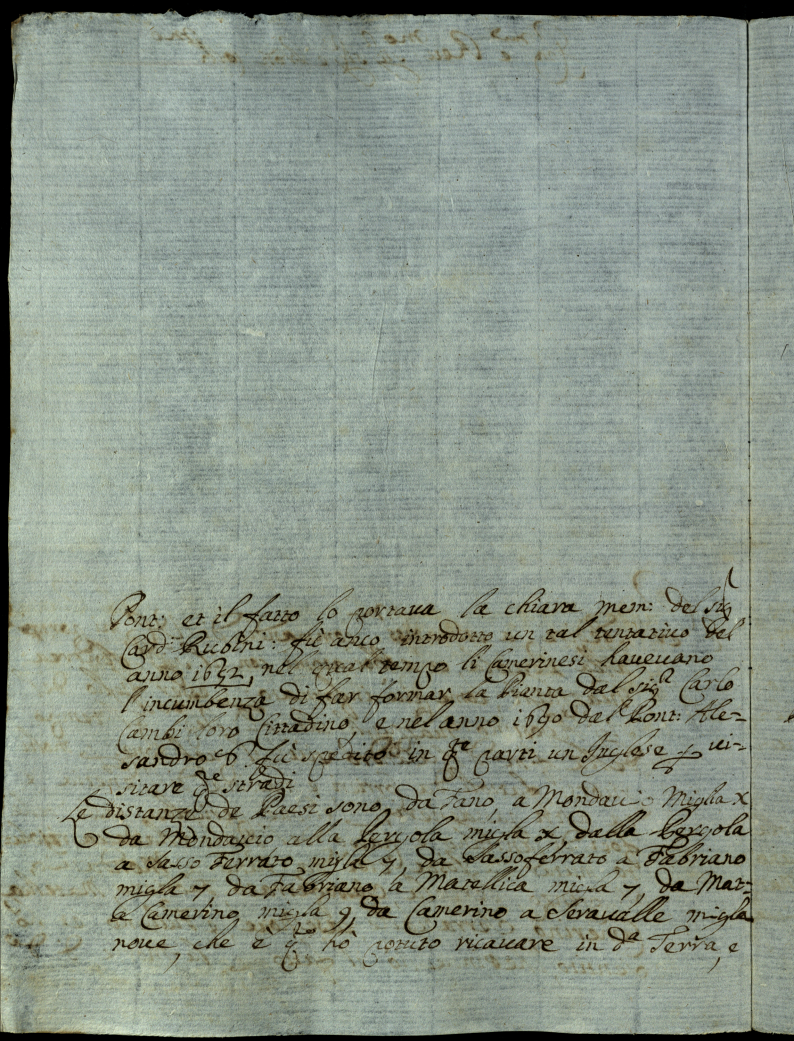 Pont: et il fatto lo portaua la chiara mem: del sig.r
Card. : fù anco introdotto un tal tentatiuo del
anno 1652, nel qual tempo li Camerinesi haueuano
l'incumbenza di far formar la Pianta dal sig.r Carlo
Cambi loro Cittadino, e nel anno 1690 dal Pont: Ale-
sandro fù spedito in q.te parti un Inglese p ui-
sitare q.e stradi
Le distanze de Paesi sono, da Fano, a Mondaui: Miglia x
da Mondauio alla Pergola migla x, dalla Pergola
a Sasso Ferrato migla 7, da Sassoferrato a Fabriano
migla 7, da Fabriano a Matellica migla 7, da Mat:
a Camerino migla 9, da Camerino a Seraualle migla
noue, che è q.to hò potuto ricauare in d.a Terra, e